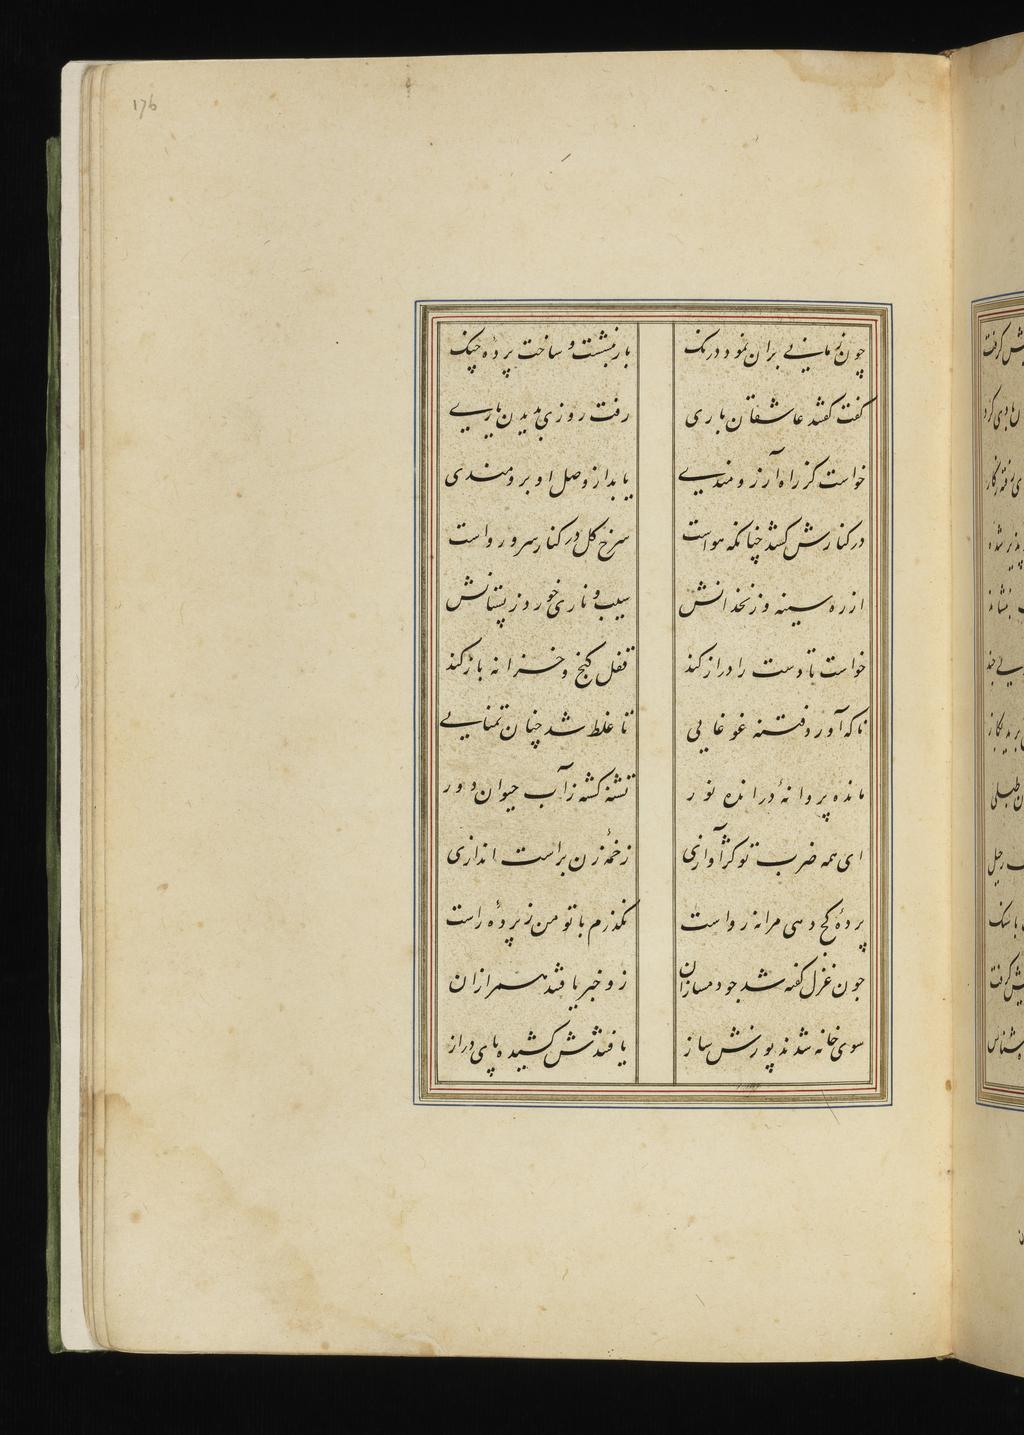 ۱۷۶
چون زمانی بران نمود درنک بازبنشست و ساخت پردهٔ چنک
کفت کفتند عاشقان باری رفت روزی بدیدن یاری
خواست کز راه آرزومندی یابد از وصل او برومندی
در کنارش کشد چنانکه هواست سرخ کل در کنار سرو رواست
از ره سینه و زنخدانش سیب و ناری خورد ز پستانش
خواست تا دست را دراز کند قفل کنج و خزانه باز کند
ناکه آورد فتنه غوغایی تا غلط شد چنان تمنایی
مانده پروانهٔ در انده نور تشنهٔ کشته ز آب حیوان دور
ای همه ضرب تو کژآوازی زخمه زن براست اندازی
پردهٔ کج دهی مرا نه رواست نکذرم با تو من ز پردهٔ راست
چون غزل کفته شد جو دمسازان زو خبر یافتند همرازان
سوی خانه شدند پوزش ساز یافتندش کشیده پای دراز